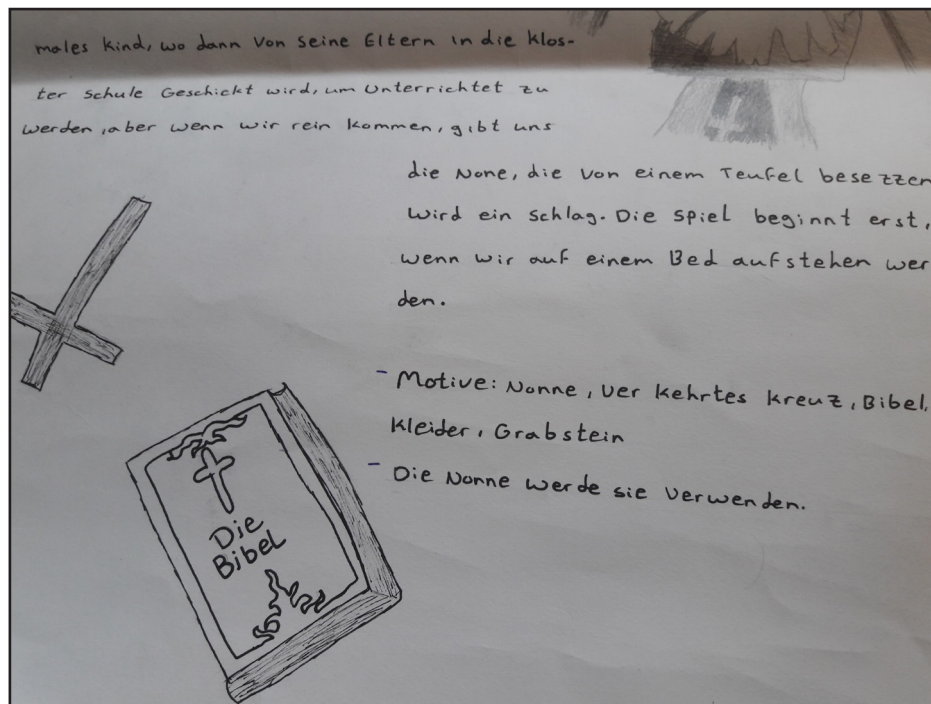 males kind, wo dann von seine Eltern in die Klos-
ter schule Geschickt wird, um Unterrichtet zu
werden, aber wenn wir rein kommen, gibt uns
die None, die von einem Teufel besezzen
wird ein schlag. Die spiel beginnt erst,
wenn wir auf einem Bed aufstehen wer
den.
- Motive: Nonne, ver kehrtes kreuz, Bibel,
kleider, Grabstein
- Die Nonne werde sie verwenden.
Die
Bibel